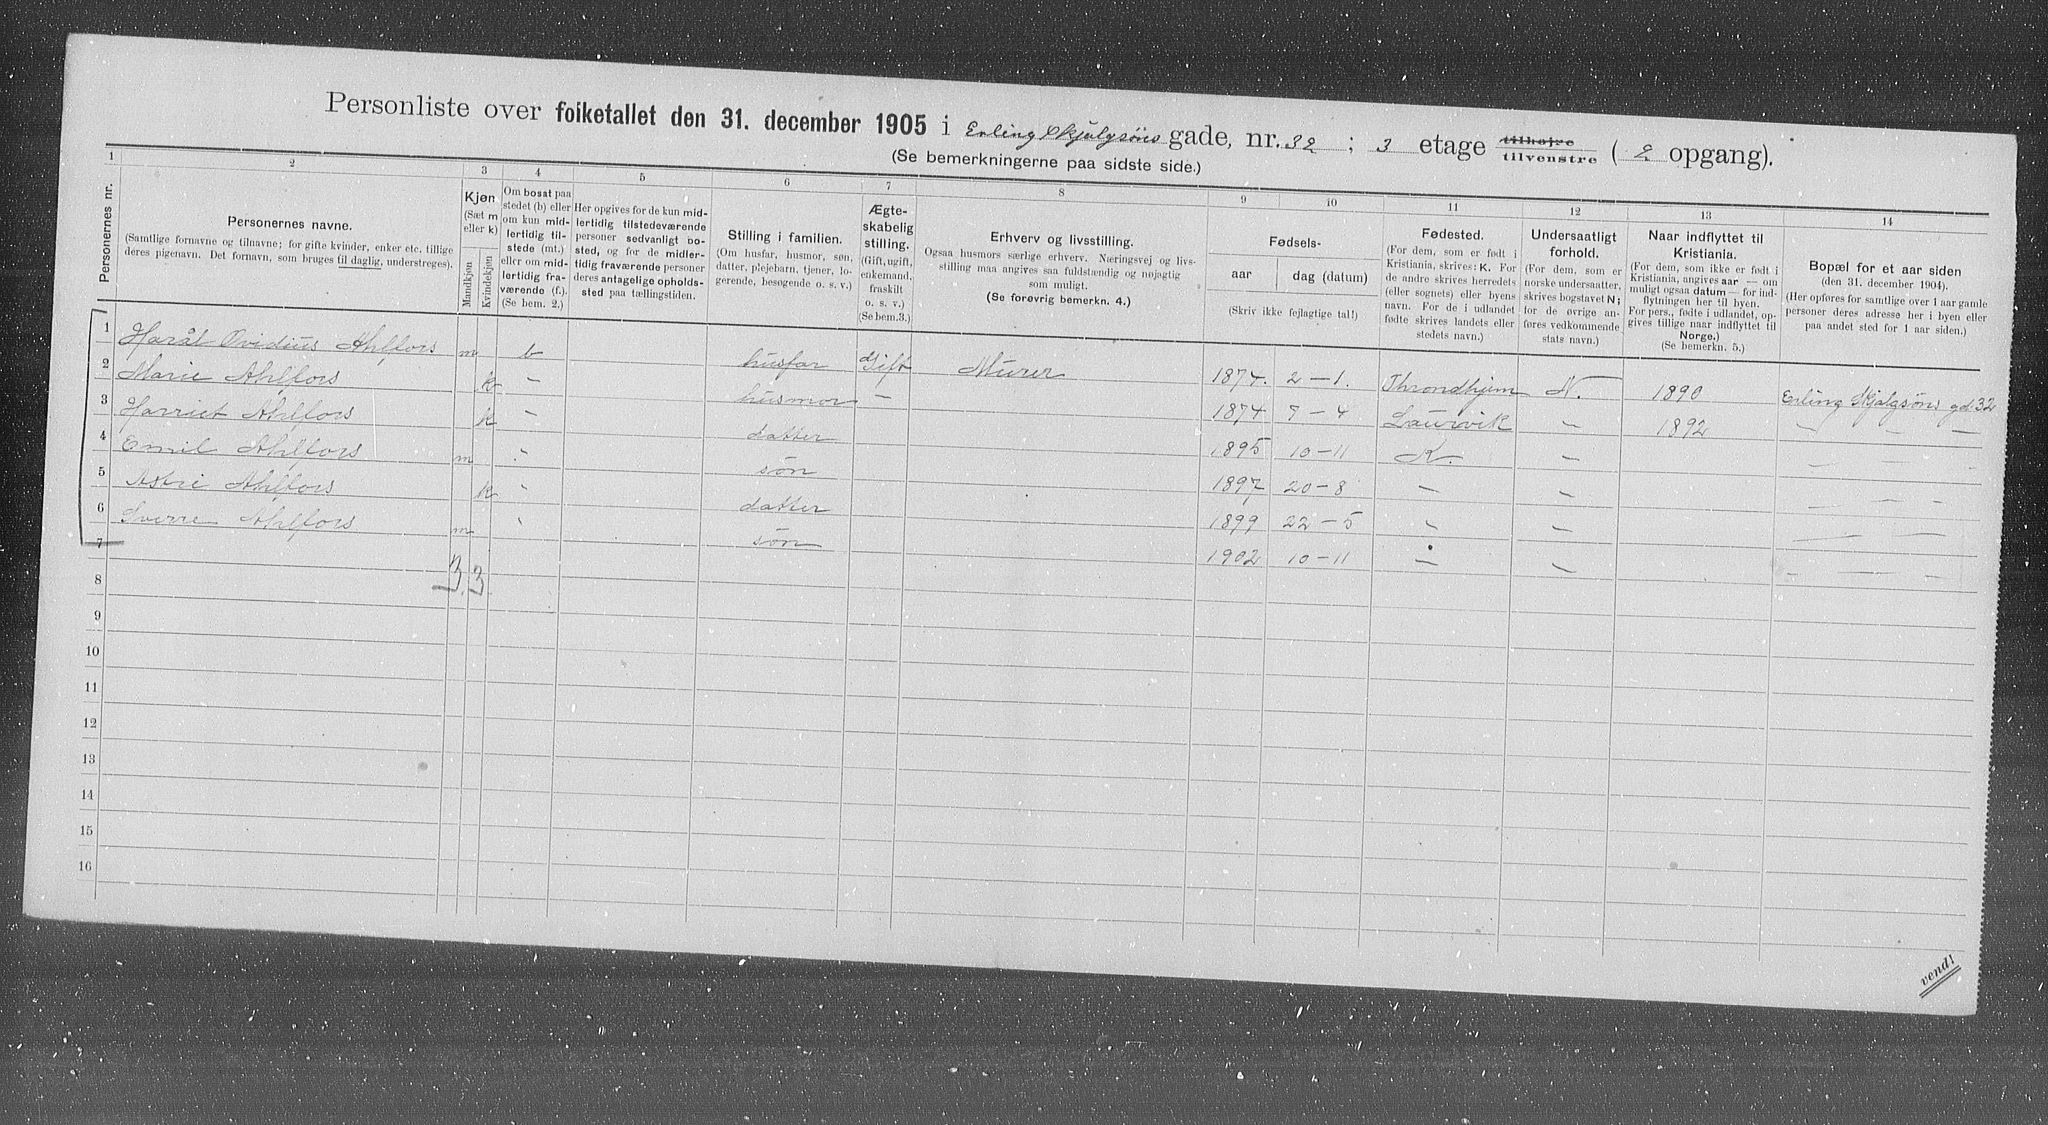 Personliste over folketallet den 31. december 1905 i Erling Skjalgsöns gade, nr. 32 ; 3 etage tilhøjre tilvenstre ( 2 opgang).
(Se bemerkningerne paa sidste side.)
1 2 3 4 5 6 7 8 9 10 11 12 13 14
Personernes nr.
Personernes navne.
(Samtlige fornavne og tilnavne; for gifte kvinder, enker etc. tillige
deres pigenavn. Det fornavn, som bruges til daglig, understreges).
Kjøn
(Sæt m
eller k)
Mandkjøn
Kvindekjøn
Om bosat paa
stedet (b) eller
om kun mid-
lertidig til-
stede (mt.)
eller om mid-
lertidig fra-
værende (f.).
(Se bem. 2.)
Her opgives for de kun mid-
lertidig tilstedeværende
personer sedvanligt bo-
sted, og for de midler-
tidig fraværende personer
deres antagelige opholds-
sted paa tællingstiden.
Stilling i familien.
(Om husfar, husmor, søn,
datter, plejebarn, tjener, lo-
gerende, besøgende o. s. v.)
Ægte-
skabelig
stilling.
(Gift, ugift,
enkemand,
fraskilt
o. s. v.)
(Se bem.3.)
Erhverv og livsstilling.
Ogsaa husmors særlige erhverv. Næringsvej og livs-
stilling maa angives saa fuldstændig og nøjagtig
som muligt.
(Se forøvrig bemerkn. 4.)
Fødsels-
aar
dag (datum)
(Skriv ikke fejlagtige tal!)
Fødested.
(For dem, som er født i
Kristiania, skrives: K. For
de andre skrives herredets
(eller sognets) eller byens
navn. For de i udlandet
fødte skrives landets eller
stedets navn.)
Undersaatligt
forhold.
(For dem, som er
norske undersaatter,
skrives bogstavet N;
for de øvrige an-
føres vedkommende
stats navn.)
Naar indflyttet til
Kristiania.
(For dem, som ikke er født i
Kristiania, angives aar — om
muligt ogsaa datum — for ind-
flytningen her til byen.
For pers., fødte i udlandet, op-
gives tillige naar indflyttet til
Norge.)
(Se bemerkn. 5.)
Bopæl for et aar siden
(den 31. december 1904).
(Her opføres for samtlige over 1 aar gamle
personer deres adresse her i byen eller
paa andet sted for 1 aar siden.)
1 Haråt Ovidius Ahlfors m b husfar Gift Murer 1874. 2 – 1. Throndhjem N. 1890 Erling Skjalgsöns gd 32
2 Marie Ahlfors k – husmor – 1874 7 – 4 Laurvik – 1892 – – –
3 Harriet Ahlfors k – datter 1895 10 – 11 K. – – – –
4 Emil Ahlfors m – søn 1897 20 – 8 – – – – –
5 Astri Ahlfors k – datter 1899 22 – 5 – – – – –
6 Sverre Ahlfors m – søn 1902 10 – 11 – – – – –
7
3 3
8
9
10
11
12
13
14
15
16
vend!